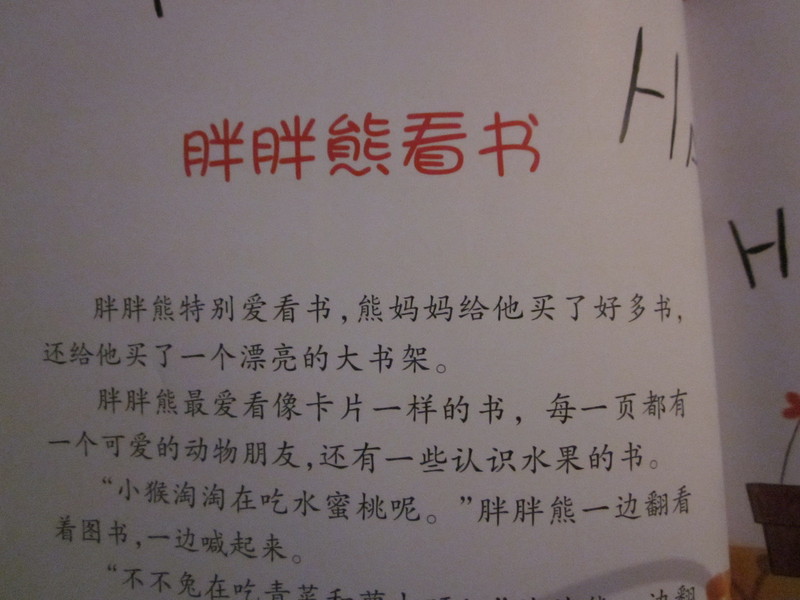 胖胖熊看书
胖胖熊特别爱看书，熊妈妈给他买了好多书，
还给他买了一个漂亮的大书架。
胖胖熊最爱看像卡片一样的书，每一页都有
一个可爱的动物朋友，还有一些认识水果的书。
“小猴淘淘在吃水蜜桃呢。”胖胖熊一边翻看
着图书，一边喊起来。
“不不兔在吃青菜和萝卜
H
H